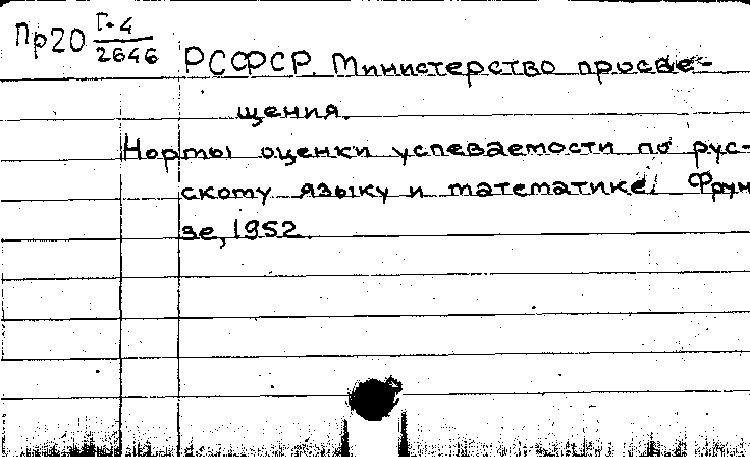 Пр20 Г-4
2646
РСФСР. Министерство просве-
щения.
Нормы оценки успеваемости по рус-
скому языку и математике. Фрун
зе, 1952.